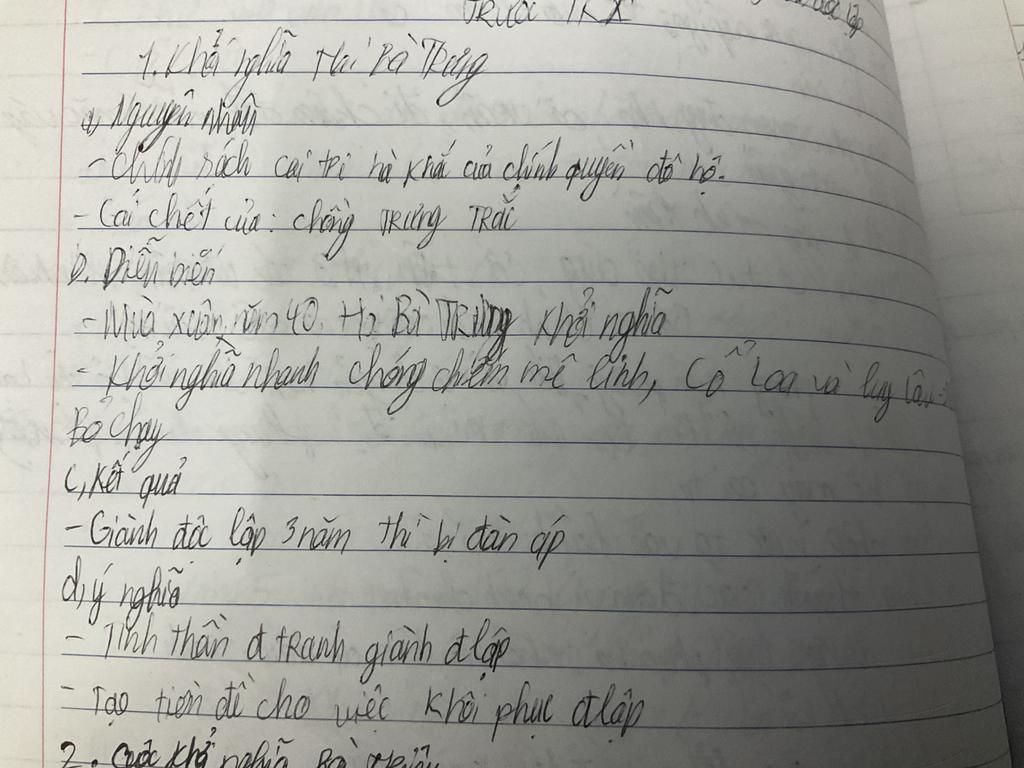 Trước TK X
độc lập
1. Khởi nghĩa Hai Bà Trưng
a, Nguyên nhân
- Chính sách cai trị hà khắc của chính quyền đô hộ.
- Cái chết của: chồng Trưng Trắc
b. Diễn biến
- Mùa xuân năm 40. Hai Bà Trưng khởi nghĩa
- Khởi nghĩa nhanh chóng chiếm mê linh, Cổ Loa và luy lâu →
Bỏ chạy
c, Kết quả
- Giành độc lập 3 năm thì bị đàn áp
d, ý nghĩa
- Tinh thần đ tranh giành đ lập
- Tạo tiền đề cho việc khôi phục đ lập
2. Cuộc khở nghĩa Bà Triệu